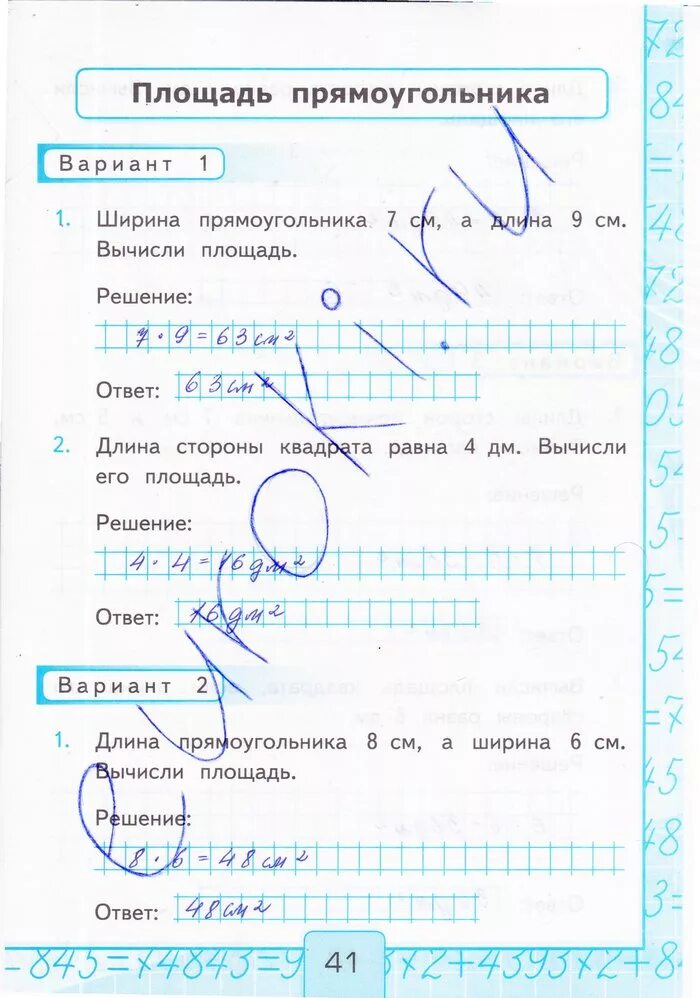 Площадь прямоугольника
Вариант 1
1. Ширина прямоугольника 7 см, а длина 9 см.
Вычисли площадь.
Решение:
7 · 9 = 63 см²
Ответ: 63 см²
2. Длина стороны квадрата равна 4 дм. Вычисли
его площадь.
Решение:
4 · 4 = 16 дм²
Ответ: 16 дм²
Вариант 2
1. Длина прямоугольника 8 см, а ширина 6 см.
Вычисли площадь.
Решение:
8 · 6 = 48 см²
Ответ: 48 см²
41
-845=74843=9